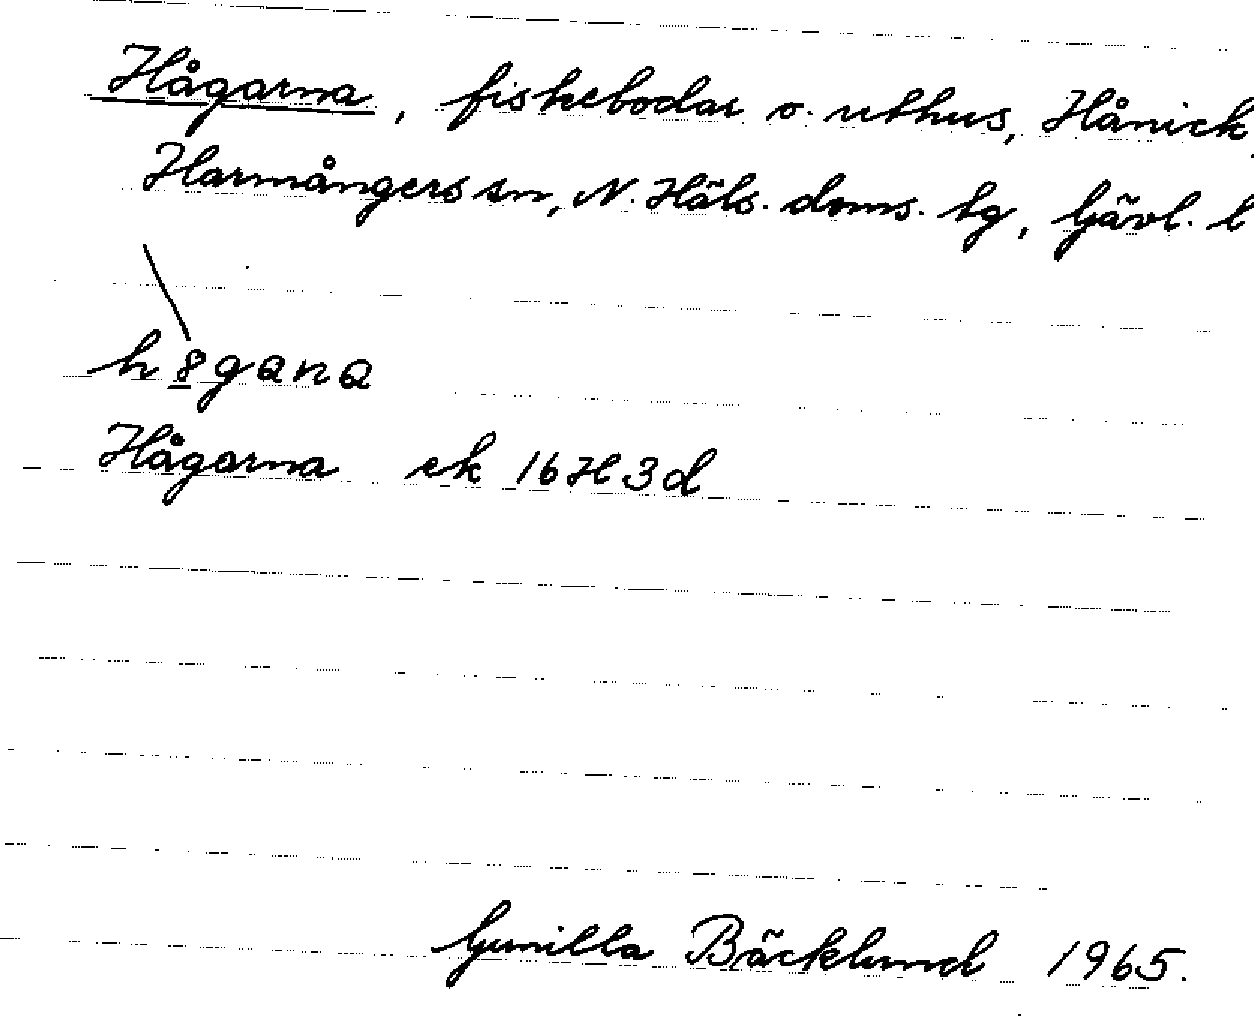 Hågarna, fiskebodar o. uthus, Hånick,
Harmångers sn, N. Häls. doms. tg, Gävl. l
Hågarna ek 16H3d
Gunilla Bäcklund 1965.